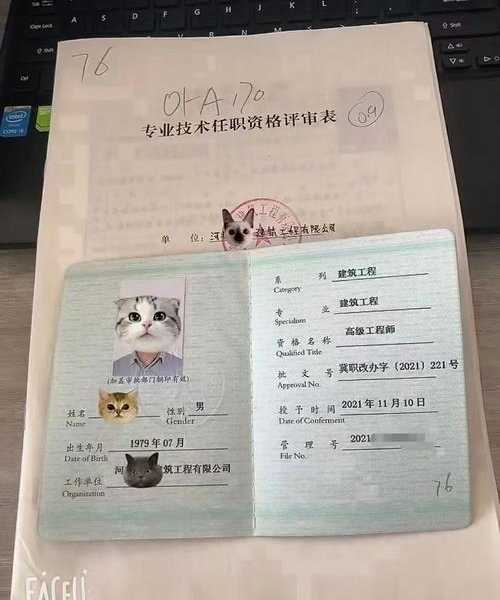 76
OFA170
09
专业技术任职资格评审表
单 位: 河 建筑工程有限公司
系 列 建筑工程
Category
专 业 建筑工程
Specialism
资格名称 高级工程师
Qualified Title
批 文 号 冀职改办字〔2021〕221 号
Approval No.
授予时间 2021 年 11 月 10 日
Date of Conferment
管 理 号 2021
File No.
76
(加盖审批部门钢印有效)
姓名
Name
性别 男
Gender
出生年月 1979 年 07 月
Date of Birth
工作单位 河 筑工程有限公司
Organization